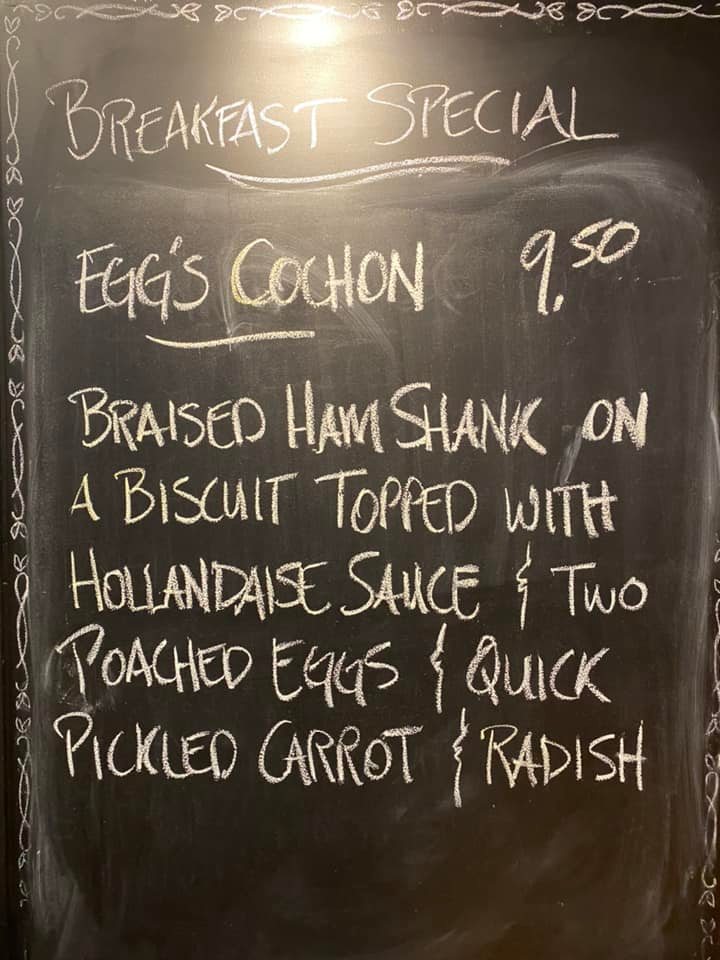 BREAKFAST SPECIAL
EGG'S COCHON 9.50
BRAISED HAM SHANK ON
A BISCUIT TOPPED WITH
HOLLANDAISE SAUCE & TWO
POACHED EGGS & QUICK
PICKLED CARROT & RADISH